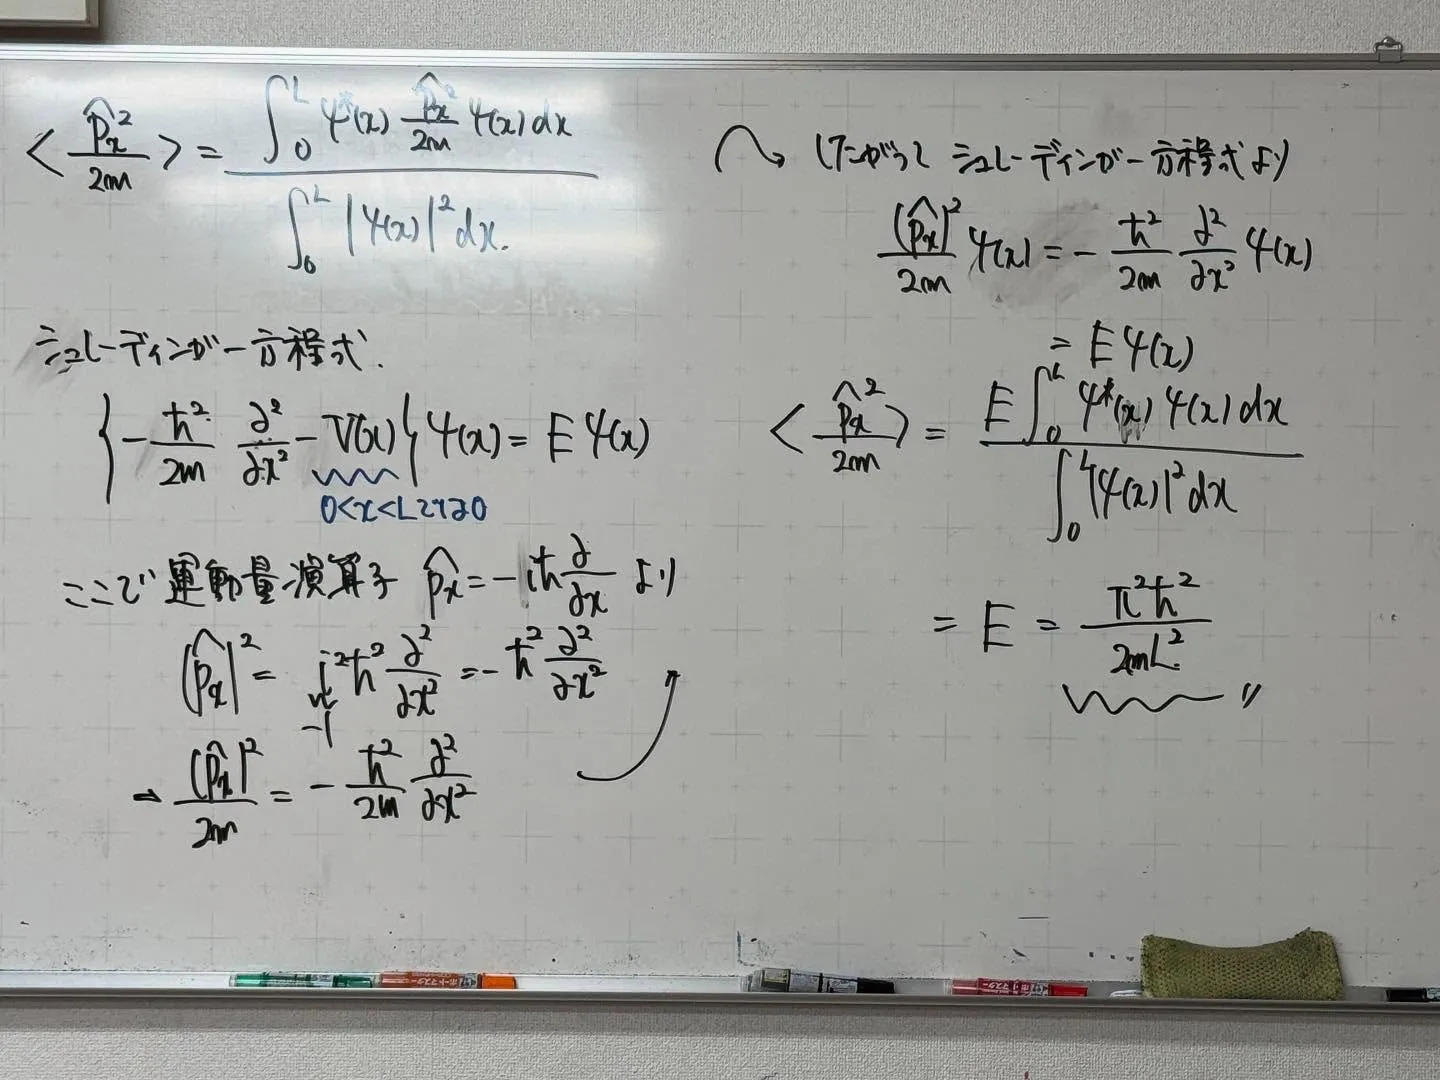 <p̂ₓ²/2m> = ∫₀ᴸ ψ*(x) p̂ₓ²/2m ψ(x) dx / ∫₀ᴸ |ψ(x)|² dx.
シュレーディンガー方程式.
{-ħ²/2m ∂²/∂x² - V(x)} ψ(x) = E ψ(x)
0<x<Lで0
ここで 運動量演算子 p̂ₓ = -iħ ∂/∂x より
(p̂ₓ)² = i²ħ² ∂²/∂x² = -ħ² ∂²/∂x²
-1
→ (p̂ₓ)²/2m = -ħ²/2m ∂²/∂x²
したがって シュレーディンガー方程式より
(p̂ₓ)²/2m ψ(x) = -ħ²/2m ∂²/∂x² ψ(x)
= E ψ(x)
<p̂ₓ²/2m> = E∫₀ᴸ ψ*(x) ψ(x) dx / ∫₀ᴸ |ψ(x)|² dx
= E = π²ħ²/2mL²